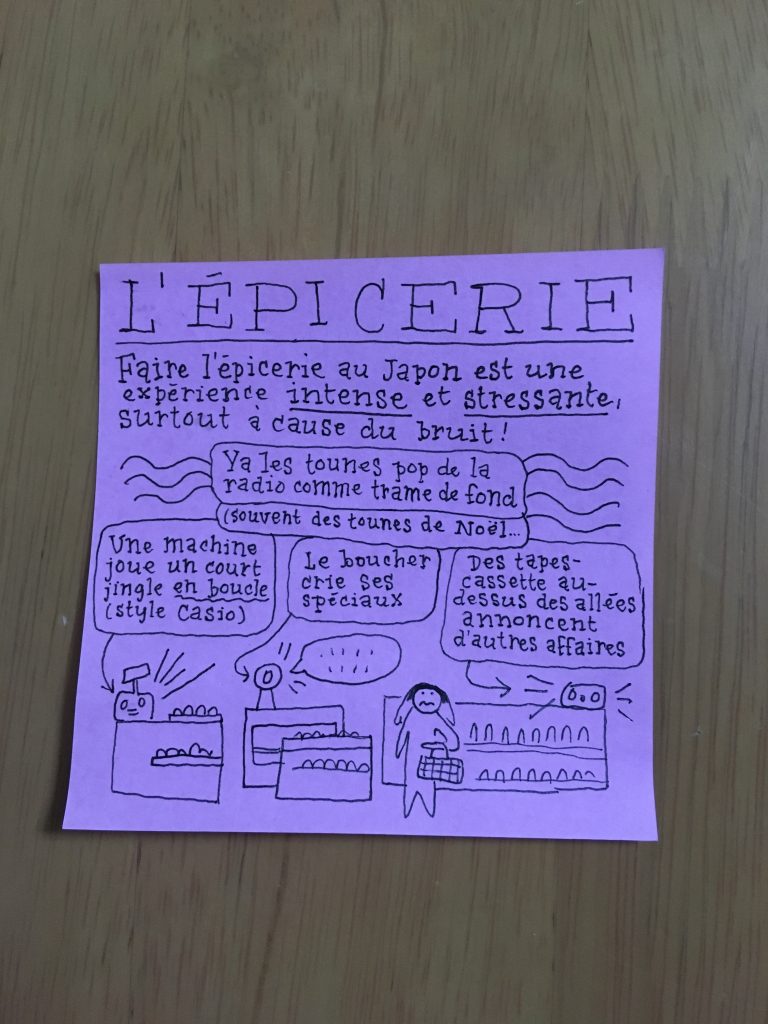 L'ÉPICERIE
Faire l'épicerie au Japon est une
expérience intense et stressante,
surtout à cause du bruit!
Ya les tounes pop de la
radio comme trame de fond
(souvent des tounes de Noël...
Une machine
joue un court
jingle en boucle
(style Casio)
Le boucher
crie ses
spéciaux
Des tapes-
cassette au-
dessus des allées
annoncent
d'autres affaires